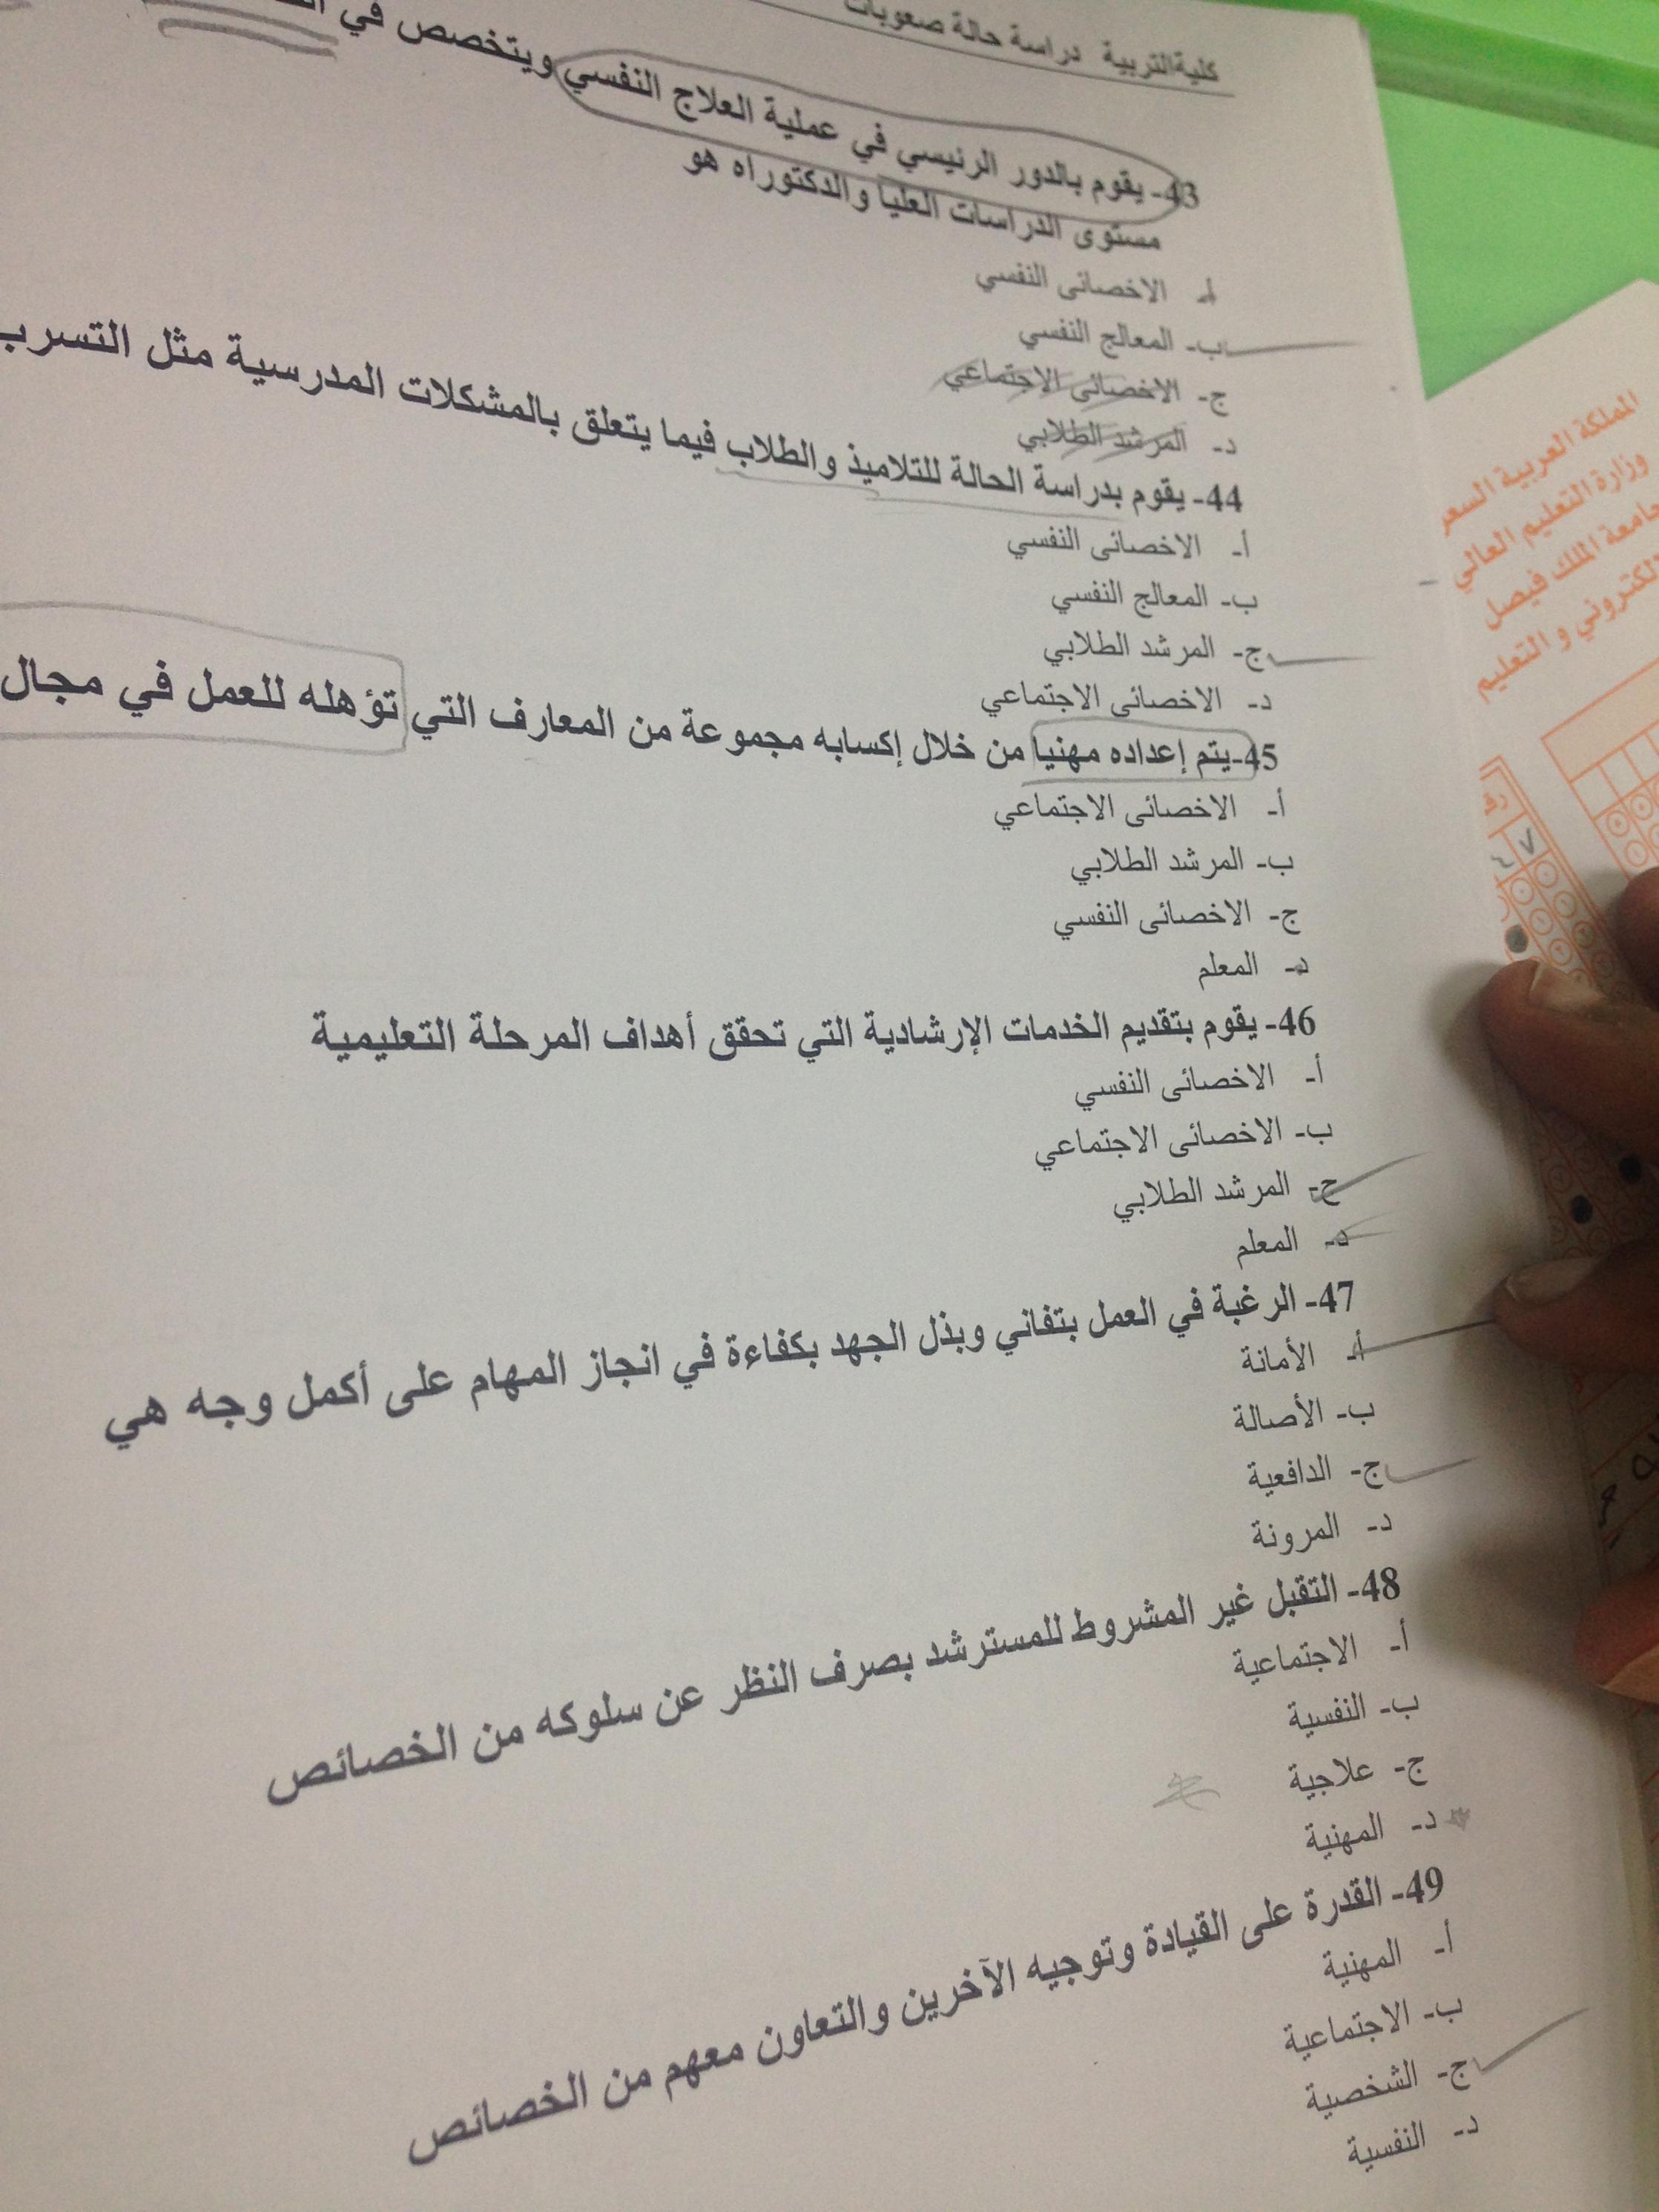 كليةالتربية دراسة حالة صعوبات
43- يقوم بالدور الرئيسي في عملية العلاج النفسي ويتخصص في
مستوى الدراسات العليا والدكتوراه هو
أ- الاخصائى النفسي
ب- المعالج النفسي
ج- الاخصائى الاجتماعي
د- المرشد الطلابي
44- يقوم بدراسة الحالة للتلاميذ والطلاب فيما يتعلق بالمشكلات المدرسية مثل التسرب
أ- الاخصائى النفسي
ب- المعالج النفسي
ج- المرشد الطلابي
د- الاخصائى الاجتماعي
45-يتم إعداده مهنيا من خلال إكسابه مجموعة من المعارف التي تؤهله للعمل في مجال
أ- الاخصائى الاجتماعي
ب- المرشد الطلابي
ج- الاخصائى النفسي
د- المعلم
46- يقوم بتقديم الخدمات الإرشادية التي تحقق أهداف المرحلة التعليمية
أ- الاخصائى النفسي
ب- الاخصائى الاجتماعي
ج- المرشد الطلابي
د- المعلم
47- الرغبة في العمل بتفاني وبذل الجهد بكفاءة في انجاز المهام على أكمل وجه هي
أ- الأمانة
ب- الأصالة
ج- الدافعية
د- المرونة
48- التقبل غير المشروط للمسترشد بصرف النظر عن سلوكه من الخصائص
أ- الاجتماعية
ب- النفسية
ج- علاجية
د- المهنية
49- القدرة على القيادة وتوجيه الآخرين والتعاون معهم من الخصائص
أ- المهنية
ب- الاجتماعية
ج- الشخصية
د- النفسية
المملكة العربية السعو
وزارة التعليم العالي
جامعة الملك فيصل
لكتروني و التعليم